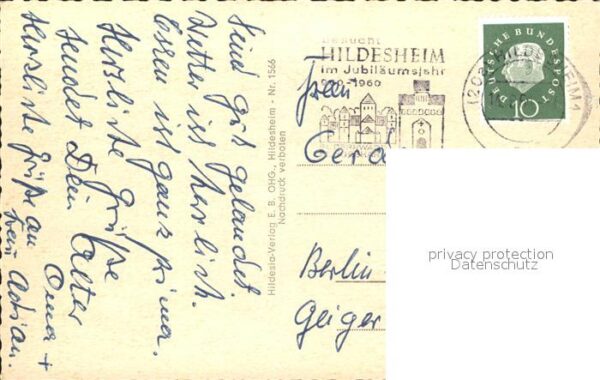 Sind gut gelandet
Wetter ist herrlich.
Essen ist ganz prima.
Herzliche Grüße
sendet Dein Alter
Oma +
Herzliche Grüße an
Frau Adrian
Hildesia-Verlag E. B. OHG., Hildesheim - Nr. 1566
Nachdruck verboten
Besucht
HILDESHEIM
im Jubiläumsjahr
-1960
DEUTSCHE BUNDESPOST
10
HILDESHEIM 1
Frau
Gerd
Berlin-
Geiger
privacy protection
Datenschutz